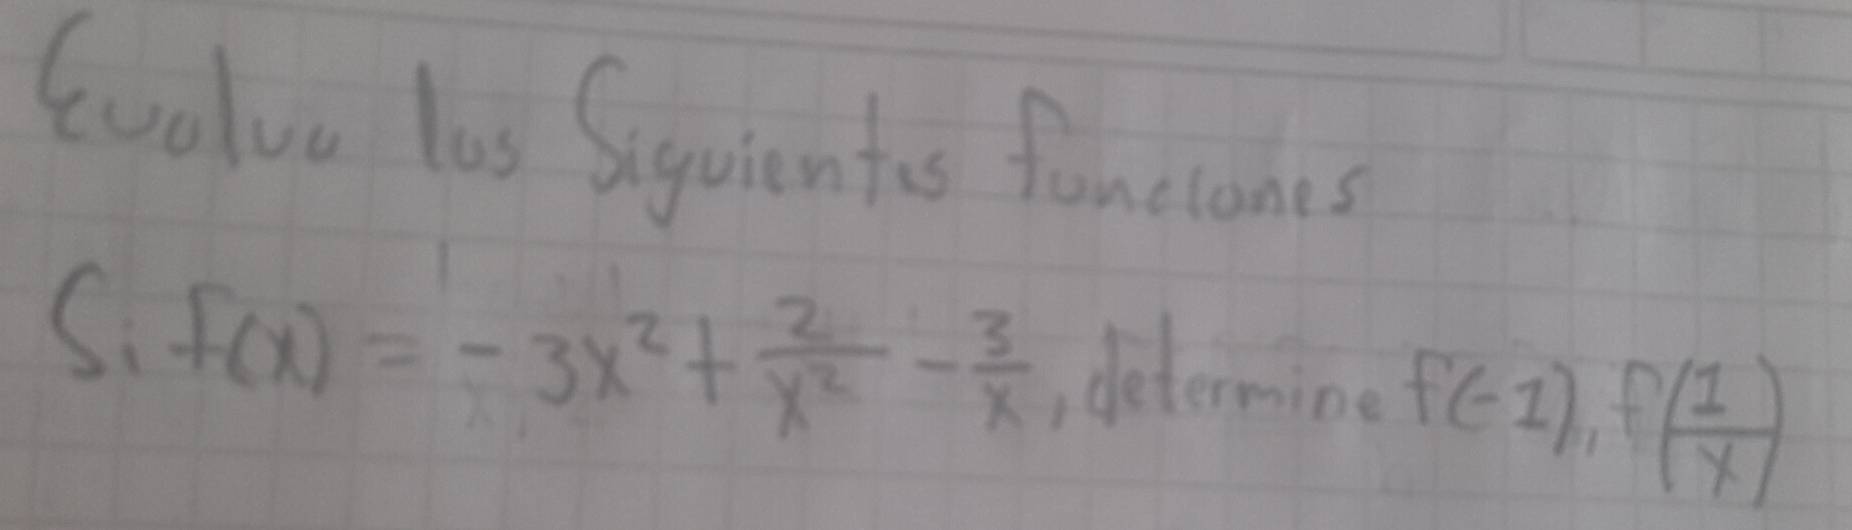 Evalua las Siguientes funciones
Si f(x) = -3x² + 2/x² - 3/x, determine f(-1), f(1/x)